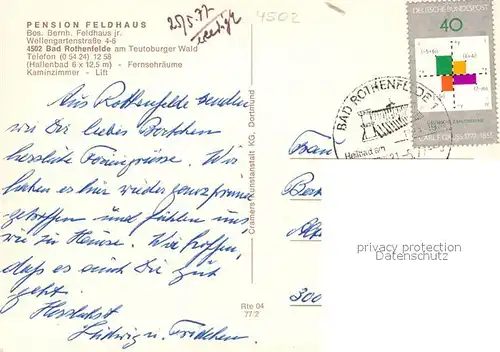 PENSION FELDHAUS
Bes. Bernh. Feldhaus jr.
Wellengartenstraße 4-6
4502 Bad Rothenfelde am Teutoburger Wald
Telefon (0 54 24) 12 58
(Hallenbad 6 x 12,5 m) - Fernsehräume
Kaminzimmer - Lift
25/5.77
4502
DEUTSCHE BUNDESPOST
40
BAD ROTHENFELDE 1
Heilbad am
Aus Rothenfelde senden
wir Dir liebes Bertchen
herzliche Feriengrüsse. Wir
haben es hier wieder ganz prima
getroffen und fühlen uns
wie zu Hause. Wir hoffen,
daß es auch Dir gut
geht.
Herzlichst
Ludwig u. Friedchen
Cramers Kunstanstalt KG, Dortmund
Rte 04
77/2
Frau
300
privacy protection
Datenschutz